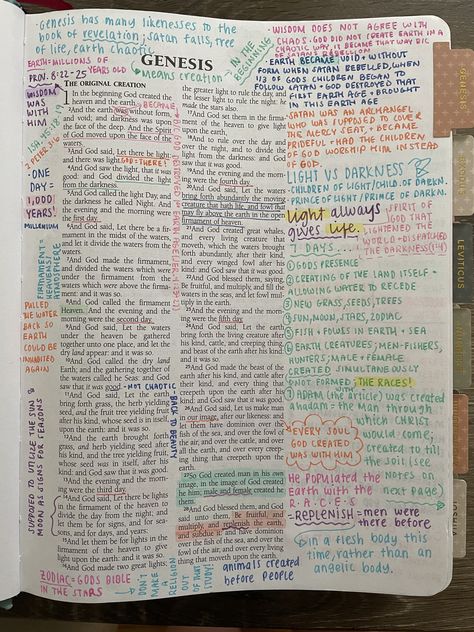 -Genesis has many likenesses to the
book of revelation; satan falls, tree
of life, earth chaotic
EARTH = MILLIONS OF
YEARS OLD
PROV. 8:22-25
WISDOM
WAS
WITH
HIM
GENESIS
means creation
IN THE
BEGINNING
-ONE
DAY =
1,000
YEARS!
MILLENIUM
FIRMAMENT=
HEAVENS/
ATMOSPHERE
PULLED
THE WATER
BACK SO
EARTH
COULD BE
INHABITED
AGAIN
SUPPOSED TO UTILIZE THE SUN +
MOON AS SIGNS FOR SEASONS
THE ORIGINAL CREATION
In the beginning God created
the heaven and the earth.
BECAME
And the earth was without form,
and void; and darkness was upon
the face of the deep. And the Spirit
of God moved upon the face of the
waters.
And God said, Let there be light:
and there was light. GOD = THERE!
And God saw the light, that it was
good: and God divided the light
from the darkness.
And God called the light Day, and
the darkness he called Night. And
the evening and the morning were
the first day.
And God said, Let there be a
firmament in the midst of the waters
and let it divide the waters from the
waters.
And God made the firmament,
and divided the waters which were
under the firmament from the
waters which were above the firma-
ment: and it was so.
And God called the firmament
Heaven. And the evening and the
morning were the second day.
And God said, Let the waters
under the heaven be gathered
together unto one place, and let the
dry land appear: and it was so.
And God called the dry land
Earth; and the gathering together of
the waters called he Seas: and God
saw that it was good. - NOT CHAOTIC
-BACK TO BEAUTY
And God said, Let the earth
bring forth grass, the herb yielding
seed, and the fruit tree yielding fruit
after his kind, whose seed is in itself,
upon the earth: and it was so.
And the earth brought forth
grass, and herb yielding seed after
his kind, and the tree yielding fruit,
whose seed was in itself, after his
kind: and God saw that it was good.
And the evening and the morn-
ing were the third day.
And God said, Let there be lights
in the firmament of the heaven to
divide the day from the night; and
let them be for signs, and for sea-
sons, and for days, and years:
And let them be for lights in the
firmament of the heaven to give
light upon the earth: and it was so.
And God made two great lights;
the greater light to rule the day, and
the lesser light to rule the night: he
made the stars also.
And God set them in the firma-
ment of the heaven to give light
upon the earth,
And to rule over the day and
over the night, and to divide the
light from the darkness: and God
saw that it was good.
And the evening and the morn-
ing were the fourth day.
And God said, Let the waters
bring forth abundantly the moving
creature that hath life, and fowl that
may fly above the earth in the open
firmament of heaven.
And God created great whales,
and every living creature that
moveth, which the waters brought
forth abundantly, after their kind,
and every winged fowl after his
kind: and God saw that it was good.
And God blessed them, saying,
Be fruitful, and multiply, and fill the
waters in the seas, and let fowl mul-
tiply in the earth.
And the evening and the morn-
ing were the fifth day.
And God said, Let the earth
bring forth the living creature after
his kind, cattle, and creeping thing,
and beast of the earth after his kind:
and it was so.
And God made the beast of the
earth after his kind, and cattle after
their kind, and every thing that
creepeth upon the earth after his
kind: and God saw that it was good.
And God said, Let us make man
in our image, after our likeness: and
let them have dominion over the
fish of the sea, and over the fowl of
the air, and over the cattle, and over
all the earth, and over every creep-
ing thing that creepeth upon the
earth.
So God created man in his own
image, in the image of God created
he him; male and female created he
them.
And God blessed them, and God
said unto them, Be fruitful, and
multiply, and replenish the earth,
and subdue it: and have dominion
over the fish of the sea, and over the
fowl of the air, and over every living
thing that moveth upon the earth.
-WISDOM DOES NOT AGREE WITH
CHAOS. GOD DID NOT CREATE EARTH IN A
CHAOTIC WAY, IT BECAME THAT WAY B/C
OF SATAN'S REBELLION
-EARTH BECAME VOID + WITHOUT
FORM WHEN SATAN REBELLED, WHEN
1/3 OF GODS CHILDREN BEGAN TO
FOLLOW SATAN + GOD DESTROYED THAT
FIRST EARTH AGE + BROUGHT
IN THIS EARTH AGE
-SATAN WAS AN ARCHANGEL
WHO WAS SUPPOSED TO COVER
THE MERCY SEAT, + BECAME
PRIDEFUL + HAD THE CHILDREN
OF GOD WORSHIP HIM INSTEAD
OF GOD.
-LIGHT VS DARKNESS
-CHILDREN OF LIGHT/CHILD. OF DARKN.
-PRINCE OF LIGHT/PRINCE OF DARKN.
Light always
gives life.
SPIRIT OF
GOD THAT
LIGHTENED THE
WORLD + DISPATCHED
THE DARKNESS (1:4)
7 DAYS....
① GODS PRESENCE
② CREATING OF THE LAND ITSELF -
ALLOWING WATER TO RECEDE
③ NEW GRASS, SEEDS, TREES
④ SUN, MOON, STARS, ZODIAC
⑤ FISH + FOWLS IN EARTH + SEA
⑥ EARTH CREATURES; MEN-FISHERS,
HUNTERS; MALE + FEMALE
CREATED SIMULTANEOUSLY
(NOT FORMED) THE RACES!
⑦ ADAM (with the article) was created
Ahadam = the man through
which CHRIST
would come;
created to till
the soil (see
notes on
next page)
EVERY SOUL
GOD CREATED
WAS WITH HIM
HE POPULATED THE
EARTH WITH THE
R·A·C·E·S
-REPLENISH = men were
there before
-in a flesh body this
time, rather than an
angelic body.
ZODIAC = GODS BIBLE
IN THE STARS
-DON'T
MAKE
RELIGION
OUT
OF THAT
STUDY
animals created
before people
LEVITICUS
JOSHUA